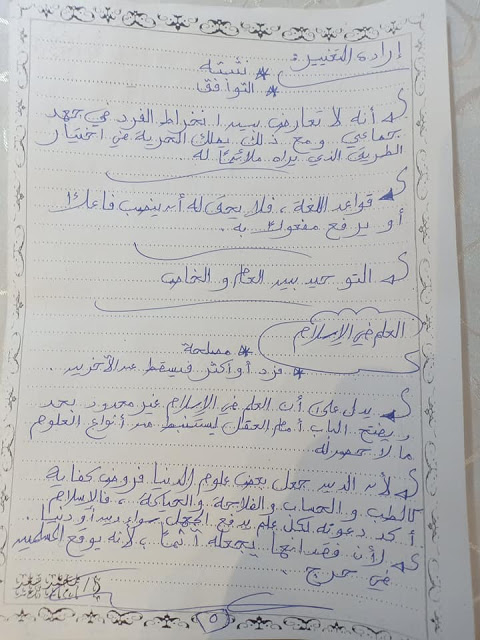 إرادة التغيير:
* نشبته
* التوافق
أنه لا تعارض بين انخراط الفرد في جهد
جماعي ومع ذلك يملك الحرية في اختيار
الطريق الذي يراه ملائمًا له
قواعد اللغة، فلا يحق له أن ينصب فاعلًا
أو يرفع مفعولًا به.
التوحيد بين العام والخاص
العلم في الإسلام
* مصلحة
* فرد أو أكثر فيسقط عن الآخرين
يدل على أن العلم في الإسلام غير محدود بحد
ويفتح الباب أمام العقل ليستنبط من أنواع العلوم
ما لا حصر له
لأن الدين جعل بعض علوم الدنيا فروض كفاية
كالطب والحساب والفلاحة والحياكة، فالإسلام
أكد دعوته لكل علم يدفع الجهل سواء دين أو دنيا.
لأن فقدانها يجعله آثمًا، لأنه يوقع المسلمين
في حرج.
٥